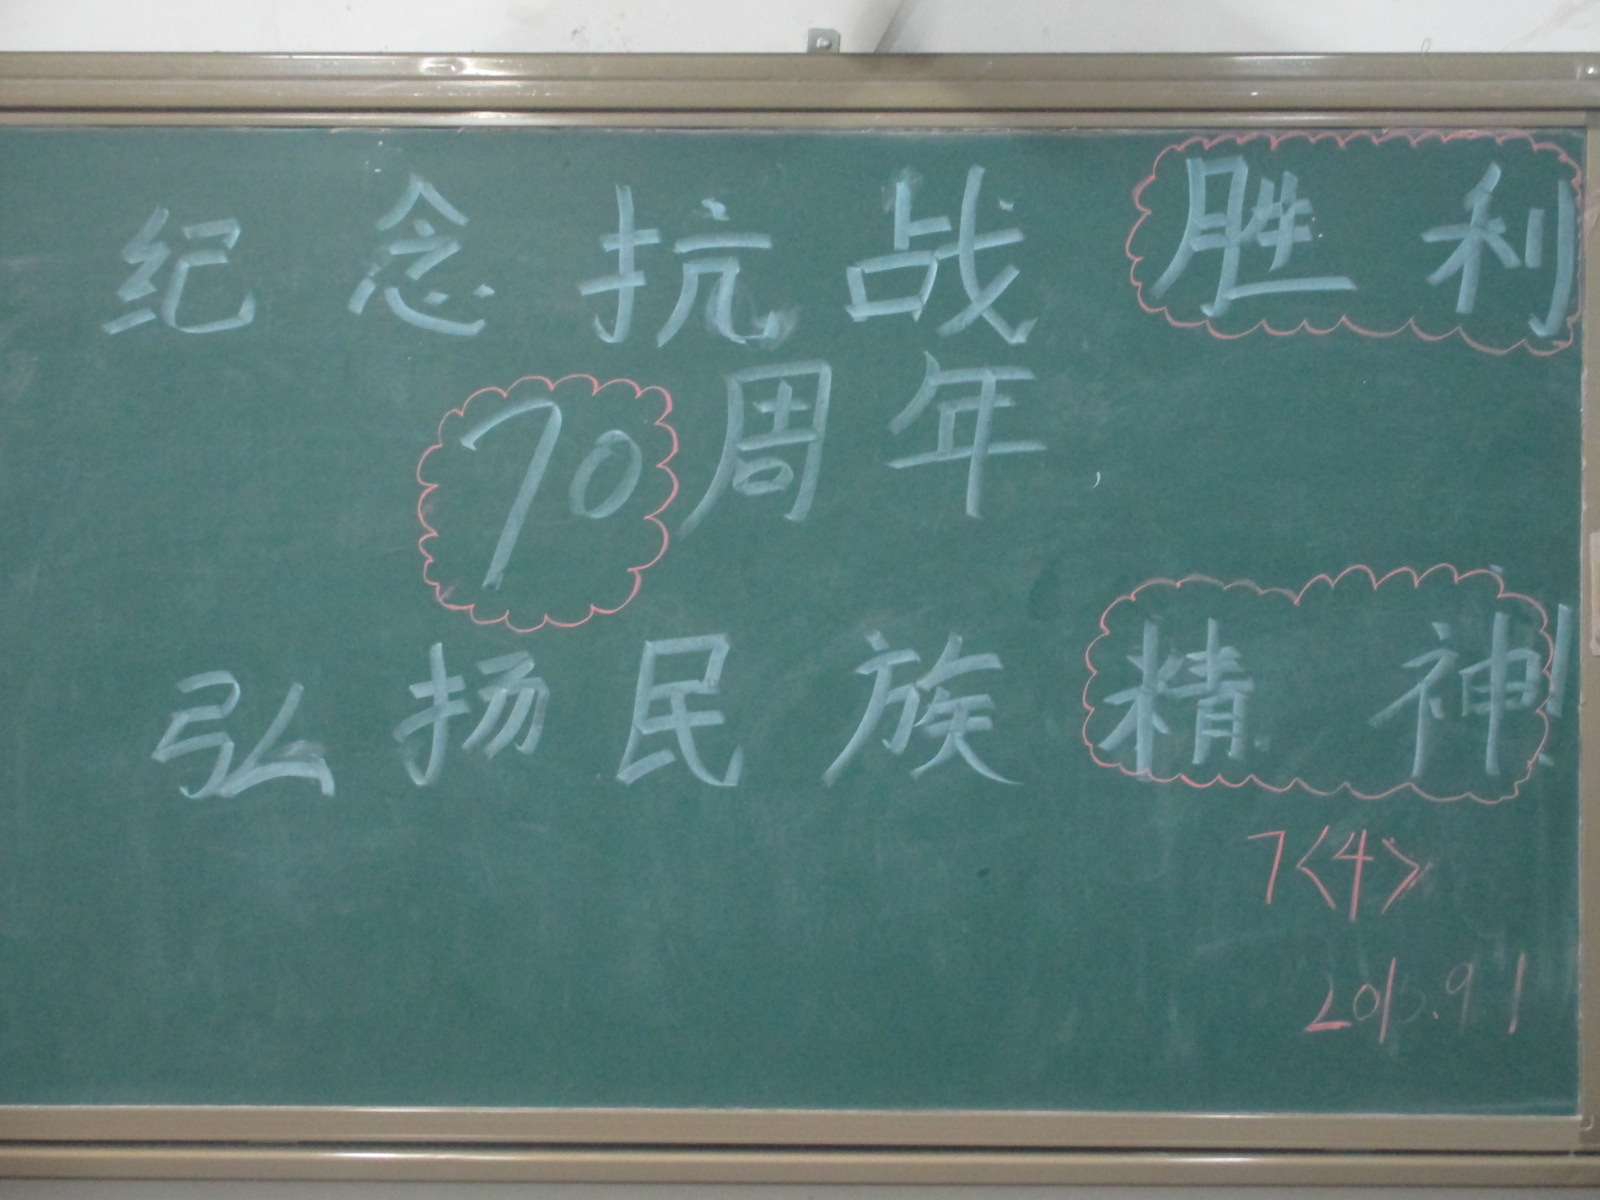 纪念抗战胜利
70周年
弘扬民族精神!
7<4>
2015.9.1